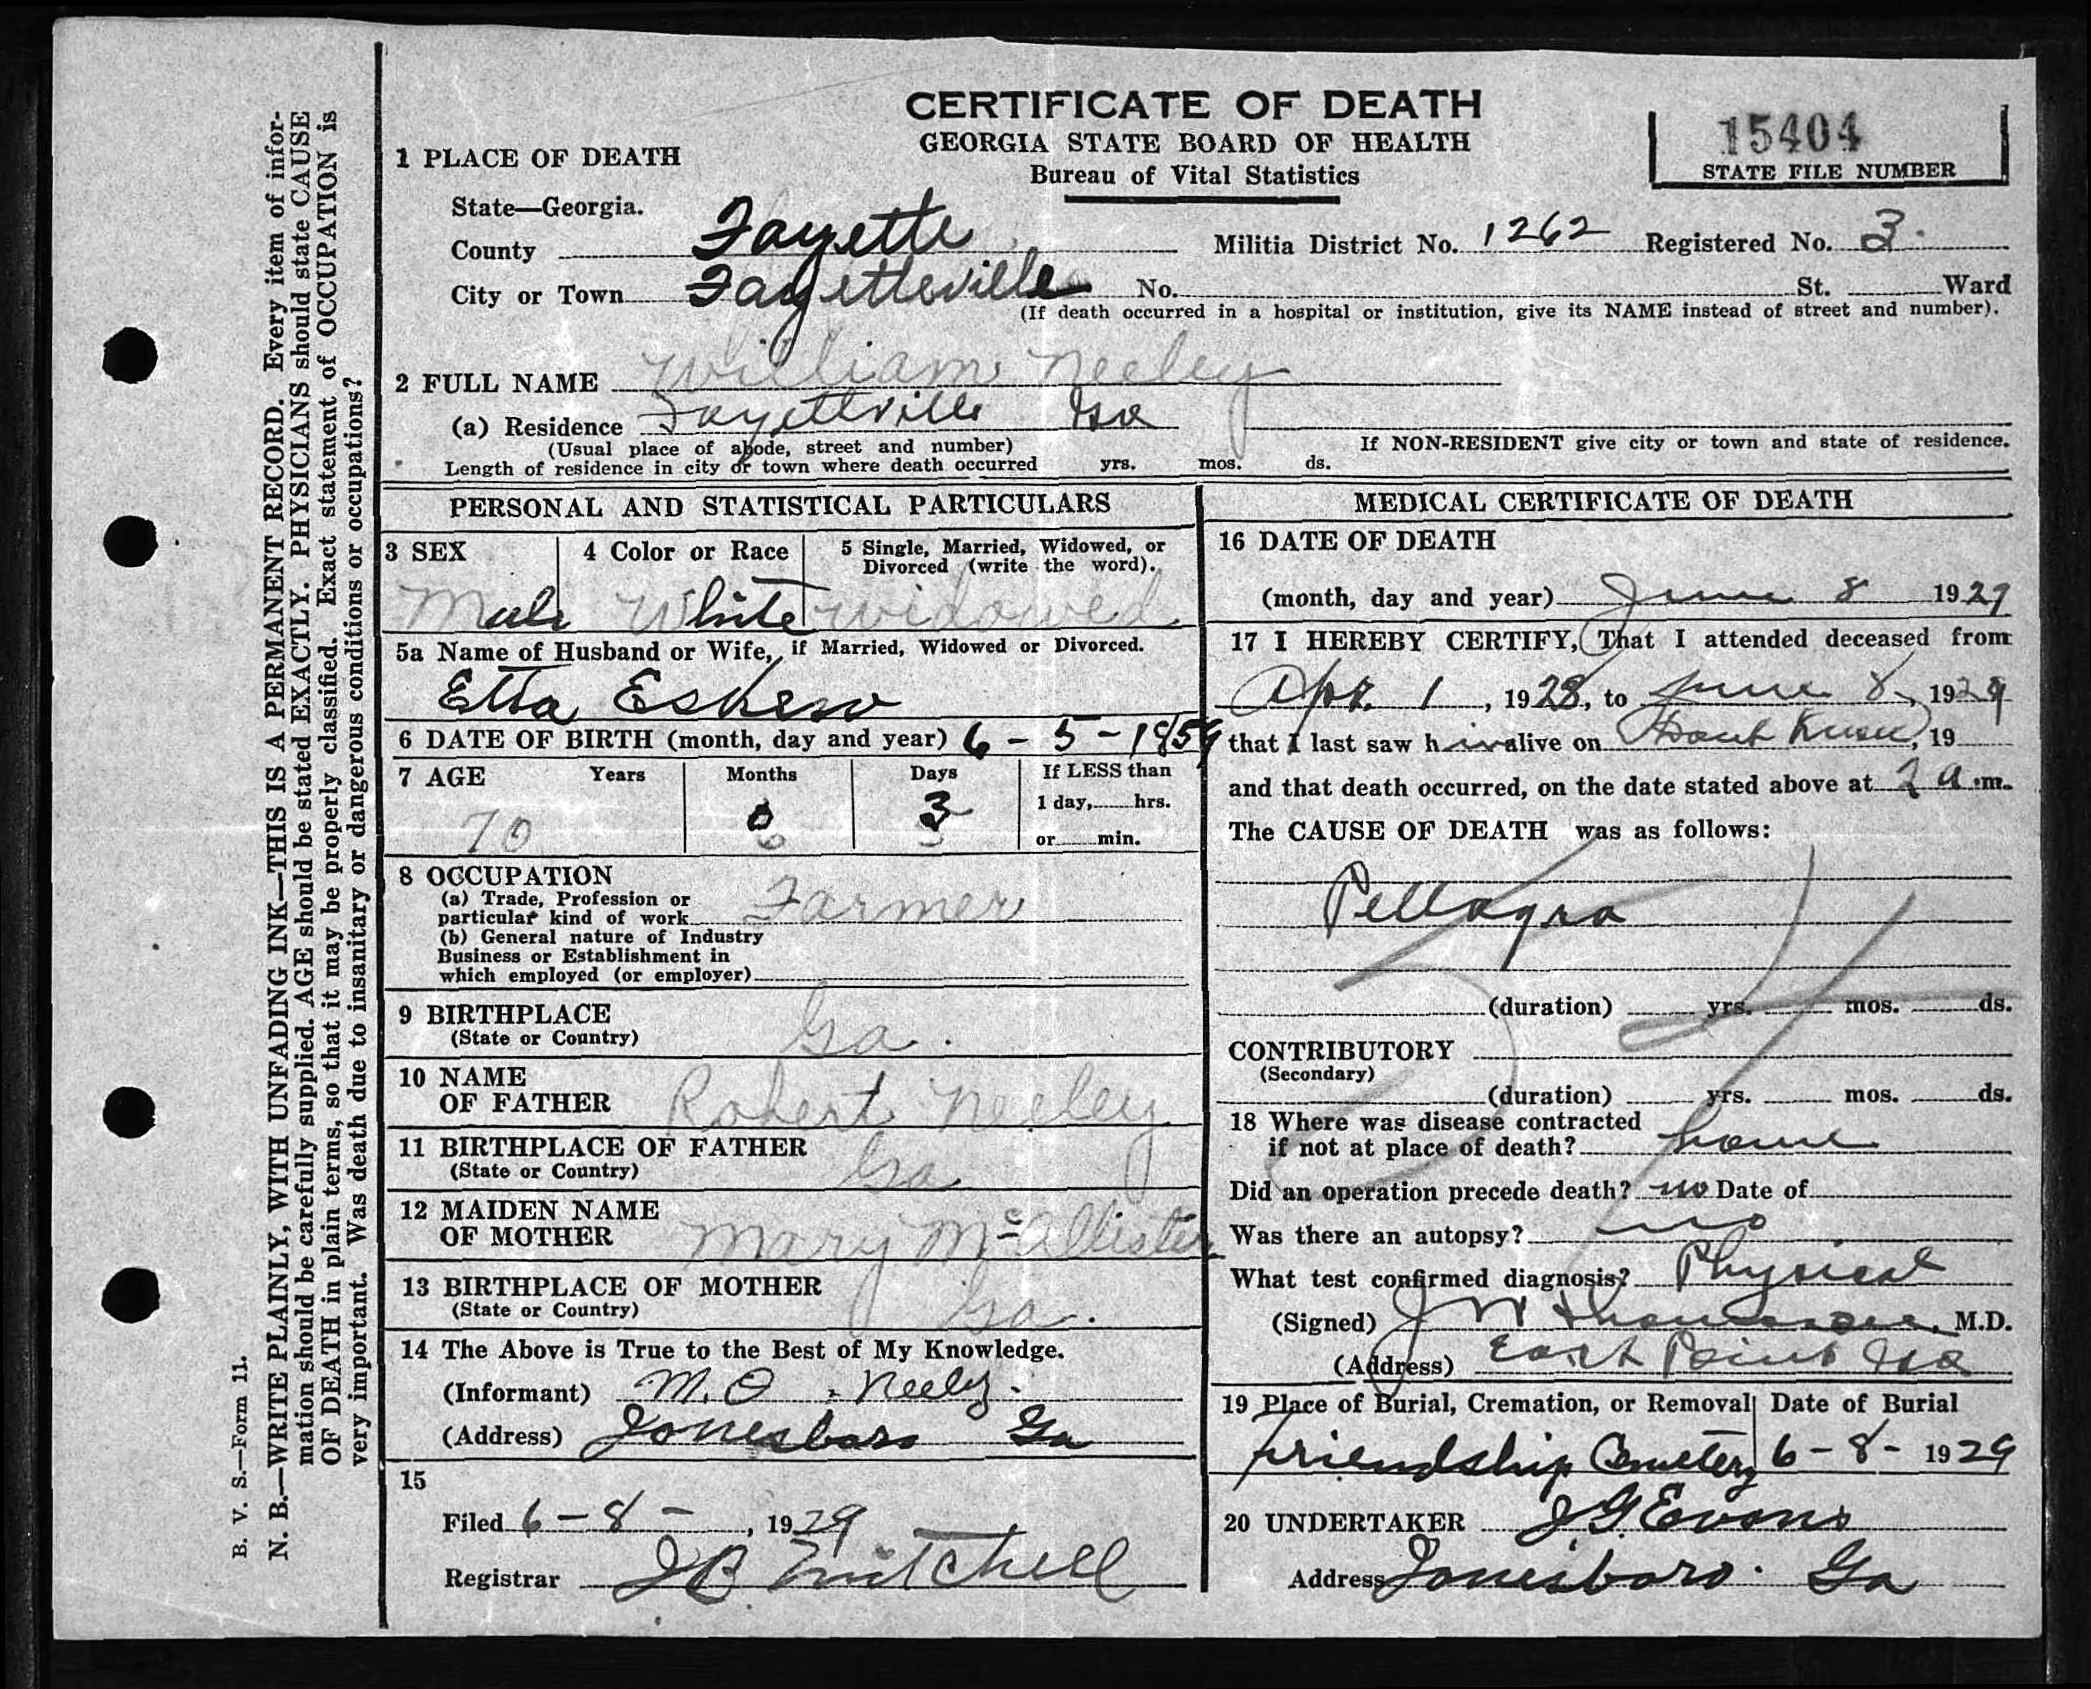 CERTIFICATE OF DEATH
GEORGIA STATE BOARD OF HEALTH
Bureau of Vital Statistics
15404
STATE FILE NUMBER
1 PLACE OF DEATH
State—Georgia.
County Fayette Militia District No. 1262 Registered No. 3.
City or Town Fayetteville No. St. Ward
(If death occurred in a hospital or institution, give its NAME instead of street and number).
2 FULL NAME William Neeley
(a) Residence Fayettville Ga
(Usual place of abode, street and number) If NON-RESIDENT give city or town and state of residence.
Length of residence in city or town where death occurred yrs. mos. ds.
PERSONAL AND STATISTICAL PARTICULARS
3 SEX 4 Color or Race 5 Single, Married, Widowed, or
Divorced (write the word).
Male White widowed
5a Name of Husband or Wife, if Married, Widowed or Divorced.
Etta Eskew
6 DATE OF BIRTH (month, day and year) 6-5-1859
7 AGE Years Months Days If LESS than
1 day, hrs.
or min.
70 0 3
0 3
8 OCCUPATION
(a) Trade, Profession or
particular kind of work Farmer
(b) General nature of Industry
Business or Establishment in
which employed (or employer)
9 BIRTHPLACE
(State or Country) Ga.
10 NAME
OF FATHER Robert Neeley
11 BIRTHPLACE OF FATHER
(State or Country) Ga
12 MAIDEN NAME
OF MOTHER Mary McAllister
13 BIRTHPLACE OF MOTHER
(State or Country) Ga.
14 The Above is True to the Best of My Knowledge.
(Informant) M. O. Neeley.
(Address) Jonesboro Ga
15
Filed 6-8-, 1929
Registrar J B Mitchell
MEDICAL CERTIFICATE OF DEATH
16 DATE OF DEATH
(month, day and year) June 8 1929
17 I HEREBY CERTIFY, That I attended deceased from
Apr. 1, 1928, to June 8, 1929
that I last saw him alive on Dont Know, 19
and that death occurred, on the date stated above at 2 a.m.
The CAUSE OF DEATH was as follows:
Pellagra
(duration) yrs. mos. ds.
CONTRIBUTORY
(Secondary)
(duration) yrs. mos. ds.
18 Where was disease contracted
if not at place of death? home
Did an operation precede death? no Date of
Was there an autopsy? no
What test confirmed diagnosis? Physical
(Signed) J W M.D.
(Address) East Point Ga
19 Place of Burial, Cremation, or Removal Date of Burial
Friendship Cemetery 6-8-1929
20 UNDERTAKER J.G. Evans
Address Jonesboro. Ga
B. V. S.—Form 11.
N. B.—WRITE PLAINLY, WITH UNFADING INK—THIS IS A PERMANENT RECORD. Every item of infor-
mation should be carefully supplied. AGE should be stated EXACTLY. PHYSICIANS should state CAUSE
OF DEATH in plain terms, so that it may be properly classified. Exact statement of OCCUPATION is
very important. Was death due to insanitary or dangerous conditions or occupations?